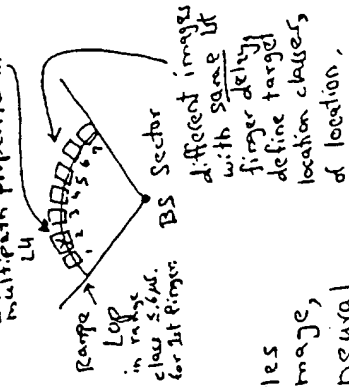 multipath properties in
L4
1 2 3 4 5 6 7
Range
LOP
in range
class 5.6 µs.
for 1st finger.
BS Sector
different images
with same 1st
finger delay
define target
location classes,
of location.
les
mage,
neural